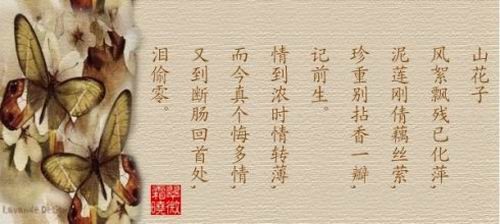 山花子
风絮飘残已化萍，
泥莲刚倩藕丝萦，
珍重别拈香一瓣，
记前生。
情到浓时情转薄，
而今真个悔多情，
又到断肠回首处，
泪偷零。
翠微
霜晓